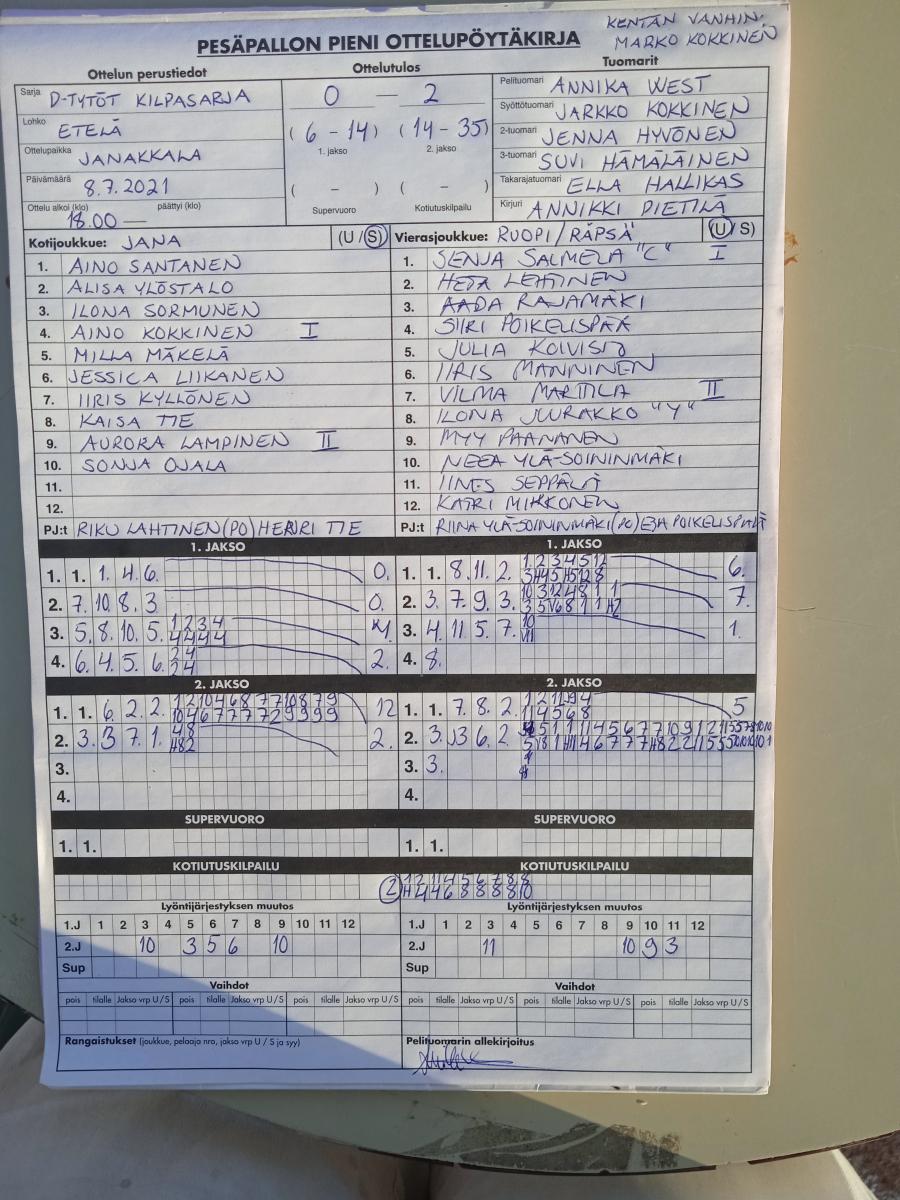 KENTÄN VANHIN:
MARKO KOKKINEN
PESÄPALLON PIENI OTTELUPÖYTÄKIRJA
Ottelun perustiedot
Sarja D-TYTÖT KILPASARJA
Lohko ETELÄ
Ottelupaikka JANAKKALA
Päivämäärä 8.7.2021
Ottelu alkoi (klo) päättyi (klo)
18.00 —
Ottelutulos
0 — 2
(6 - 14) (14 - 35)
1. jakso 2. jakso
( - ) ( - )
Supervuoro Kotiutuskilpailu
Tuomarit
Pelituomari ANNIKA WEST
Syöttötuomari JARKKO KOKKINEN
2-tuomari JENNA HYVÖNEN
3-tuomari SUVI HÄMÄLÄINEN
Takarajatuomari ELLA HALLIKAS
Kirjuri ANNIKKI DIETILÄ
Kotijoukkue: JANA (U / S)
1. AINO SANTANEN
2. ALISA YLÖSTALO
3. ILONA SORMUNEN
4. AINO KOKKINEN I
5. MILLA MÄKELÄ
6. JESSICA LIIKANEN
7. IIRIS KYLLÖNEN
8. KAISA TIE
9. AURORA LAMPINEN II
10. SONJA OJALA
11.
12.
PJ:t RIKU LAHTINEN(PO) HENRI TIE
Vierasjoukkue: RUOPI/RÄPSÄ (U/ S)
1. SENJA SALMELA "C" I
2. HETA LEHTINEN
3. AADA RAJAMÄKI
4. SIIRI POIKELISPÄÄ
5. JULIA KOIVISTO
6. IIRIS MANNINEN
7. VILMA MARTTILA II
8. ILONA JUURAKKO "Y"
9. MYY PAANANEN
10. NEEA YLÄ-SOININMÄKI
11. IINES SEPPÄLÄ
12. KATRI MIKKONEN
PJ:t RIINA YLÄ-SOININMÄKI(PO) EIJA POIKELISPÄÄ
1. JAKSO
1. 1. 1. 4. 6. 0.
2. 7. 10. 8. 3 0.
3. 5. 8. 10. 5. 1 2 3 4
4 4 4 4
4. 6. 4. 5. 6. 2 4 2.
2 4
1. JAKSO
1. 1. 8. 11. 2. 6.
2. 3. 7. 9. 3. 7.
3. 4. 11. 5. 7. 10 1.
4. 8.
2. JAKSO
1. 1. 6. 2. 2. 1 2 10 4 6 8 7 7 10 8 7 9 12
10 4 6 7 7 7 7 2 9 9 9 9
2. 3. 3 7. 1. 4 8 2.
3.
4.
2. JAKSO
1. 1. 7. 8. 2. 5
11 4 5 6 8
2. 3. 3 6. 2
3. 3.
4.
SUPERVUORO
1. 1.
SUPERVUORO
1. 1.
KOTIUTUSKILPAILU
KOTIUTUSKILPAILU
2 1 2 11 4 5 6 7 8 8
Lyöntijärjestyksen muutos
1.J 1 2 3 4 5 6 7 8 9 10 11 12
2.J 10 3 5 6 10
Sup
Lyöntijärjestyksen muutos
1.J 1 2 3 4 5 6 7 8 9 10 11 12
2.J 11 10 9 3
Sup
Vaihdot
pois tilalle Jakso vrp U / S pois tilalle Jakso vrp U / S pois tilalle Jakso vrp U / S
Vaihdot
pois tilalle Jakso vrp U / S pois tilalle Jakso vrp U / S pois tilalle Jakso vrp U / S
Rangaistukset (joukkue, pelaaja nro, jakso vrp U / S ja syy)
Pelituomarin allekirjoitus